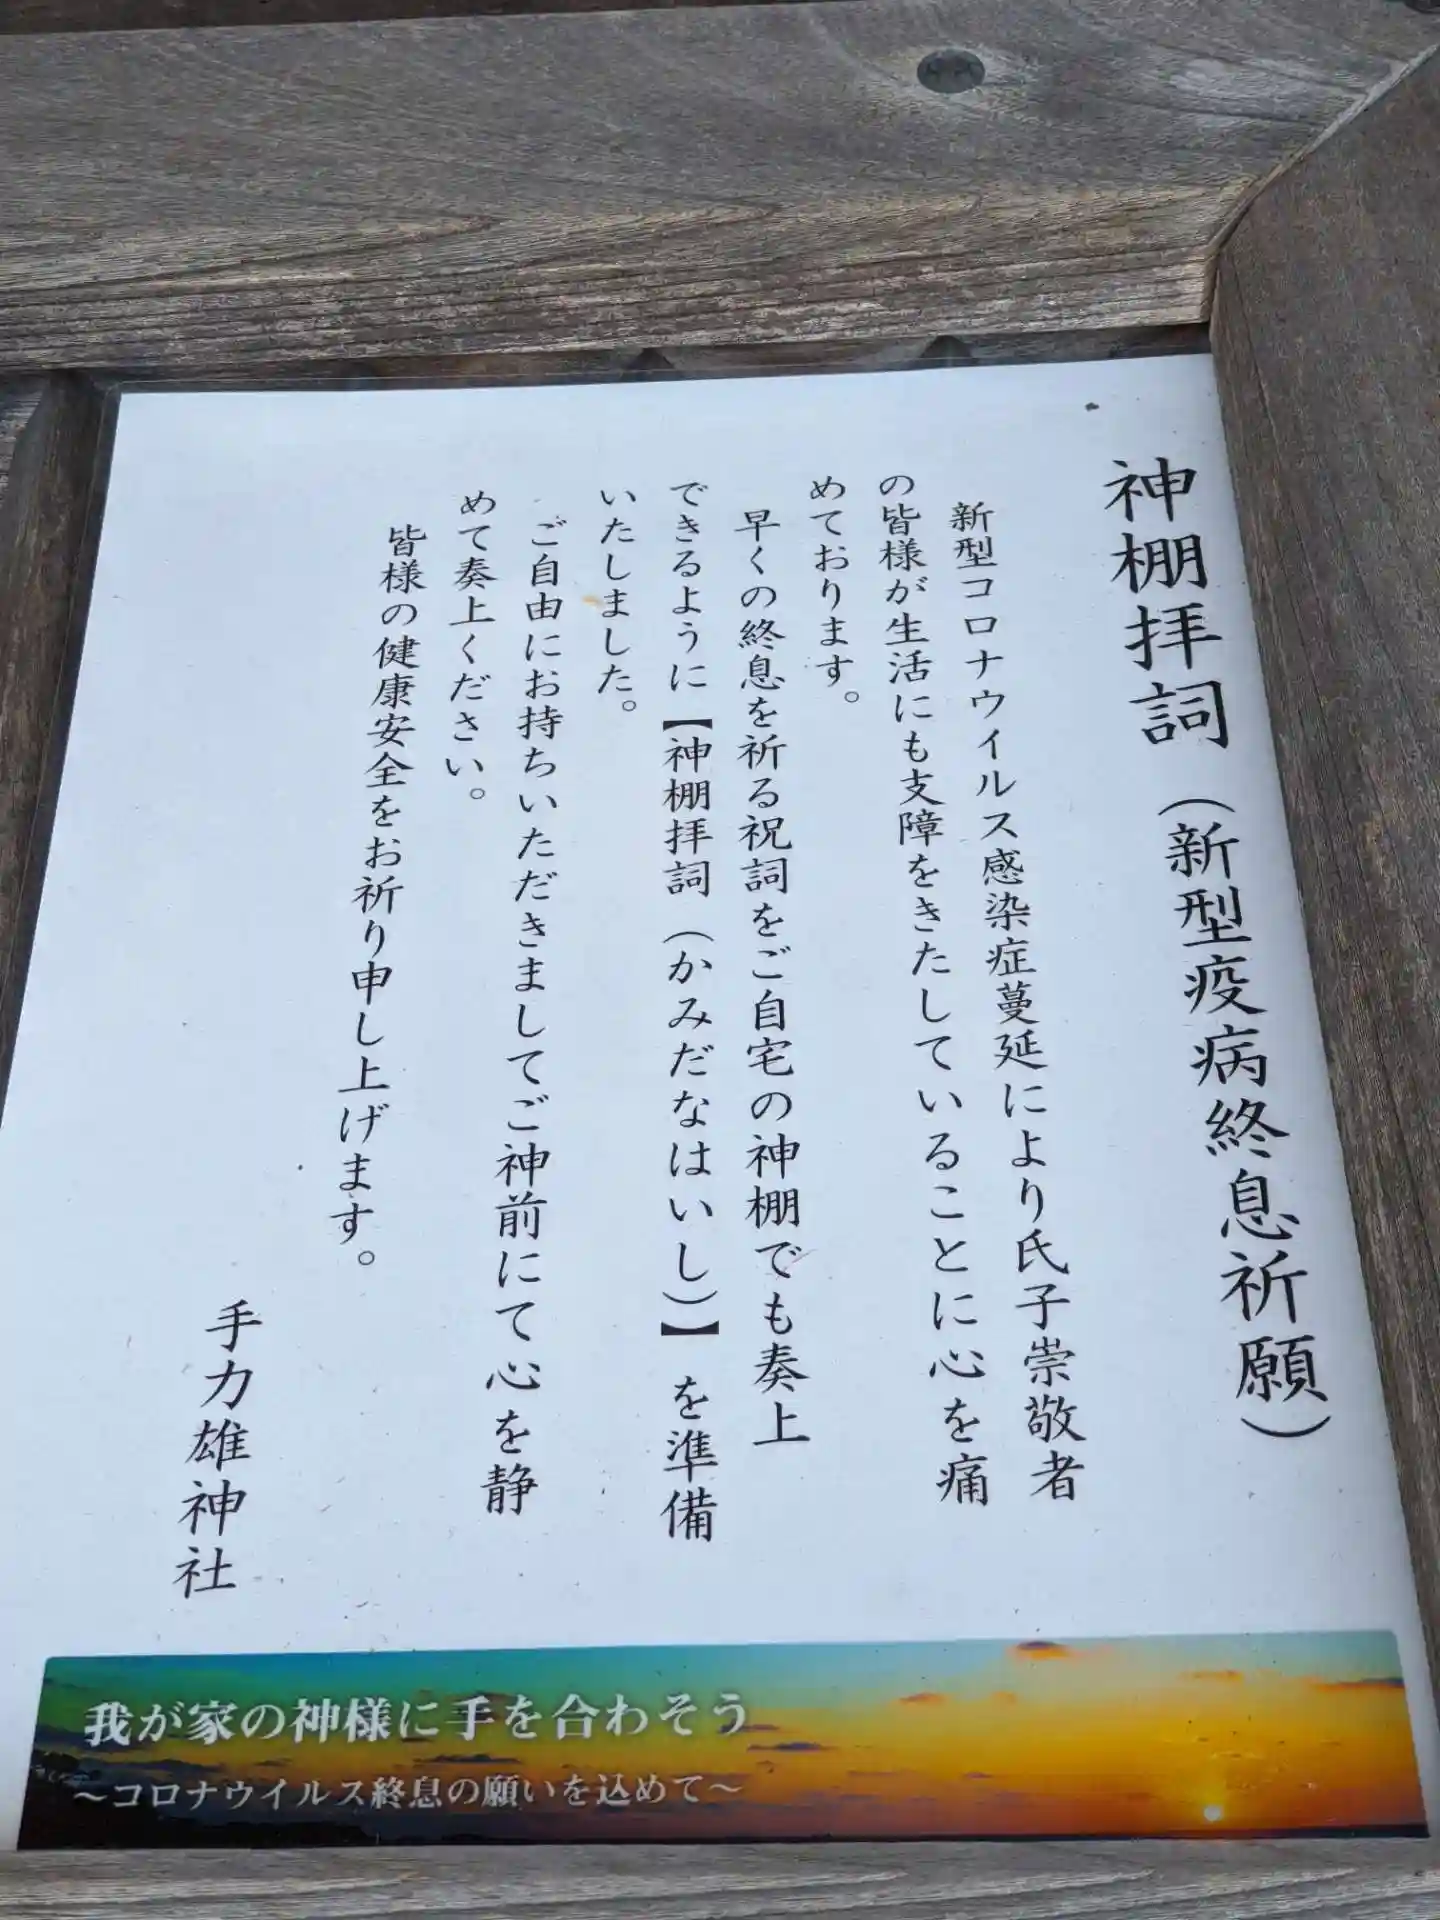 神棚拝詞（新型疫病終息祈願）
新型コロナウイルス感染症蔓延により氏子崇敬者
の皆様が生活にも支障をきたしていることに心を痛
めております。
早くの終息を祈る祝詞をご自宅の神棚でも奏上
できるように【神棚拝詞（かみだなはいし）】を準備
いたしました。
ご自由にお持ちいただきましてご神前にて心を静
めて奏上ください。
皆様の健康安全をお祈り申し上げます。
手力雄神社
我が家の神様に手を合わそう
～コロナウイルス終息の願いを込めて～